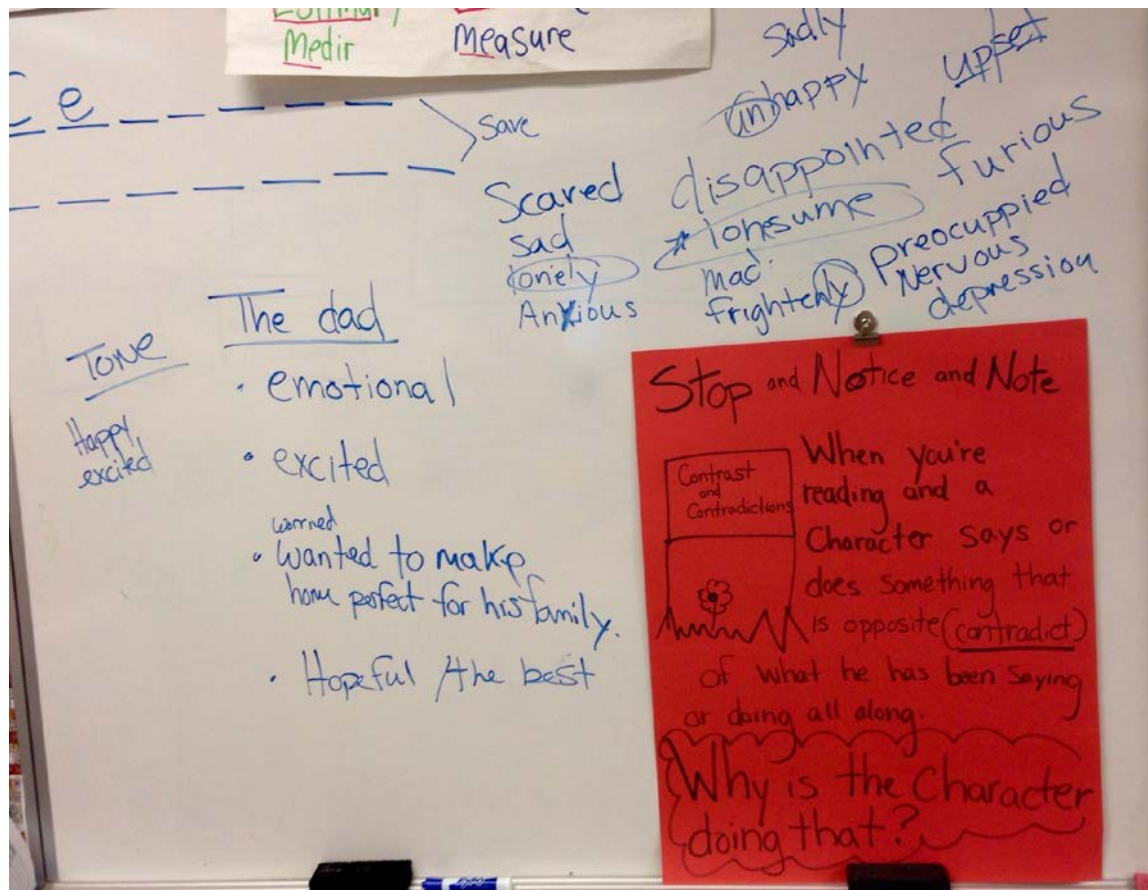 Medir
measure
Ce
save
sadly
unhappy
upset
disappointed
furious
Scared
sad
lonely
Anxious
lonesume
mad
frightenly
preocuppied
Nervous
depression
Tone
Happy,
excited
The dad
• emotional
• excited
worried
• wanted to make
home perfect for his family.
• Hopeful /the best
Stop and Notice and Note
Contrast
and
Contradictions
When you're
reading and a
Character says or
does something that
is opposite (contradict)
of what he has been saying
or doing all along.
Why is the Character
doing that?